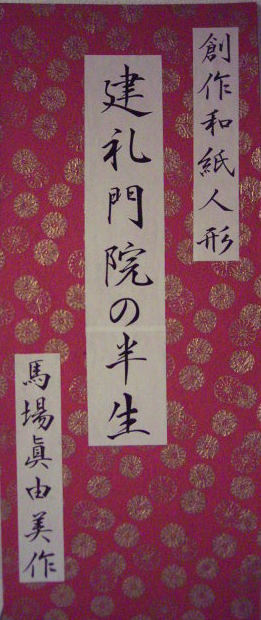 創作和紙人形
建礼門院の半生
馬場眞由美作